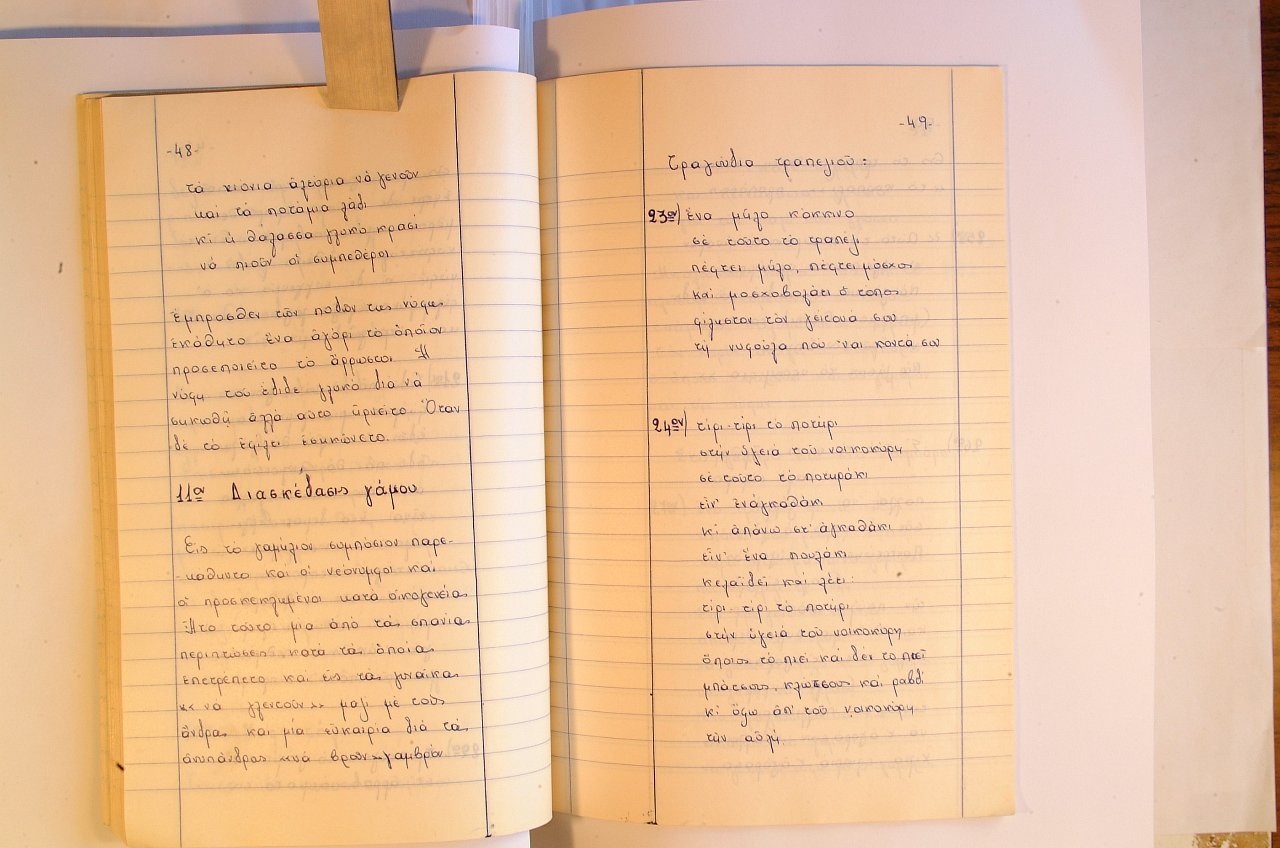 -48-
τὰ χιόνια ἀλεύρια νὰ γενοῦν
καὶ τὰ ποτάμια λάδι
κι ἡ θάλασσα γλυκὸ κρασί
νὰ πιοῦν οἱ συμπεθέροι
Ἔμπροσθεν τῶν ποδῶν τῆς νύφης
ἐκάθητο ἕνα ἀγόρι τὸ ὁποῖον
προσεποιεῖτο τὸ ἄρρωστο. Ἡ
νύφη τοῦ ἔδιδε γλυκὸ διὰ νὰ
σηκωθῇ ἀλλὰ αὐτὸ ἠρνεῖτο. Ὅταν
δὲ τὸ ἐφίλει ἐσηκώνετο.
11ον Διασκέδασις γάμου
Εἰς τὸ γαμήλιον συμπόσιον παρε-
κάθηντο καὶ οἱ νεόνυμφοι καὶ
οἱ προσκεκλημένοι κατὰ οἰκογενείας
Ἦτο τοῦτο μια ἀπὸ τὰς σπανίας
περιπτώσεις κατὰ τὰς ὁποίας
ἐπετρέπετο καὶ εἰς τὰς γυναῖκας
«νὰ γλεντοῦν» μαζὶ μὲ τοὺς
ἄνδρας καὶ μία εὐκαιρία διὰ τὰς
ἀνυπάνδρας «νὰ βροῦν» γαμβρὸν
-49-
Τραγούδια τραπεζιοῦ:
23ον) Ἕνα μῆλο κόκκινο
σὲ τοῦτο τὸ τραπέζι
πέφτει μῆλο, πέφτει μόσχος
καὶ μοσχοβολάει ὁ τόπος
φίλησον τὸν γείτονά σου
τὴ νυφούλα ποὺ 'ναι κοντά σου
24ον) τίρι-τίρι τὸ ποτήρι
στὴν ὑγειὰ τοῦ νοικοκύρη
σὲ τοῦτο τὸ ποτηράκι
εἶν' ἕν' ἀγκαθάκι
κι ἀπάνω στ' ἀγκαθάκι
εἶν' ἕνα πουλάκι
κελαϊδεῖ καὶ λέει:
τίρι-τίρι τὸ ποτήρι
στὴν ὑγειὰ τοῦ νοικοκύρη
ὅποιος τὸ πιεῖ καὶ δὲν τὸ πιεῖ
μπάτσους, κλώτσους καὶ ραβδὶ
κι ὄξω ἀπ' τοῦ νοικοκύρη
τὴν αὐλή